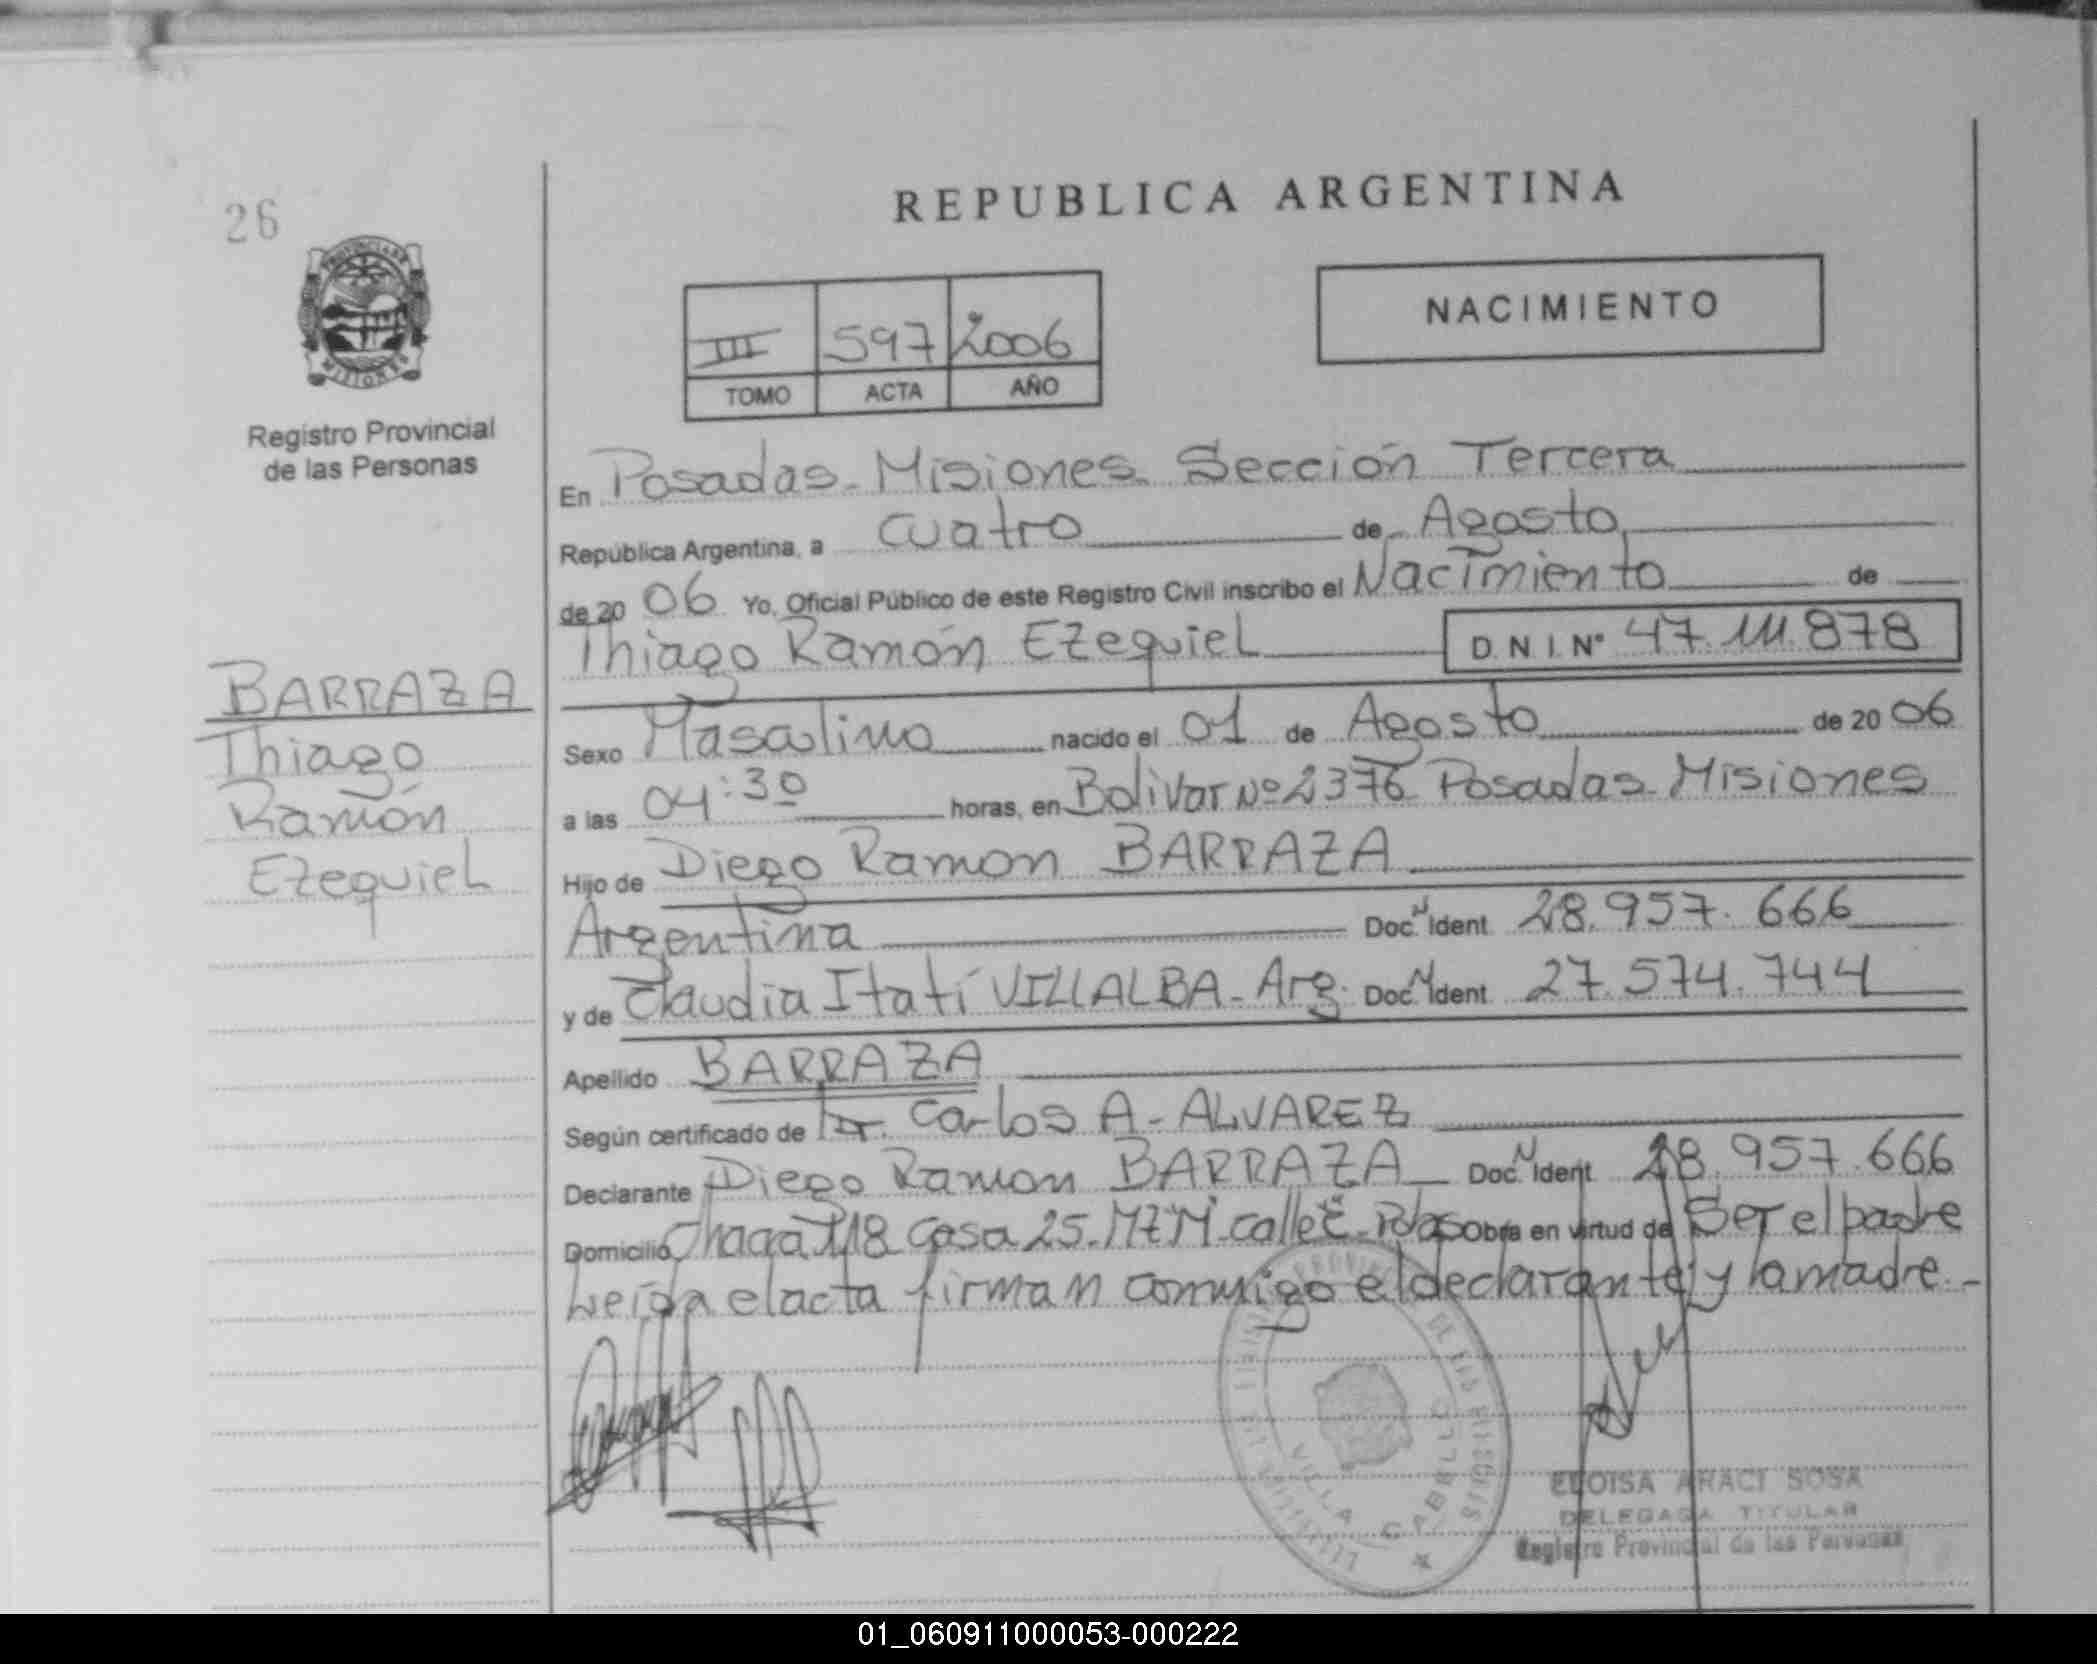 26
REPUBLICA ARGENTINA
NACIMIENTO
III 597 2006
TOMO ACTA AÑO
PROVINCIA DE
MISIONES
Registro Provincial
de las Personas
En Posadas - Misiones. Sección Tercera
República Argentina, a cuatro de Agosto
de 20 06 Yo, Oficial Público de este Registro Civil inscribo el Nacimiento de
Thiago Ramón Ezequiel D.N.I. N° 47.111.878
BARRAZA
Thiago
Ramón
Ezequiel
Sexo Masculino nacido el 01 de Agosto de 20 06
a las 04:30 horas, en Bolivar Nº 2376 Posadas - Misiones
Hijo de Diego Ramon BARRAZA
Argentina Doc. N Ident 28.957.666
y de Claudia Itatí VILLALBA - Arg. Doc. N Ident 27.574.744
Apellido BARRAZA
Según certificado de Dr. Carlos A. ALVAREZ
Declarante Diego Ramon BARRAZA Doc. N Ident 28.957.666
Domicilio Chaga 118 Casa 25. Mz "M" calle Pdas Obra en virtud de Ser el padre
Leída el acta firman conmigo el declarante y la madre.-
VILLA CABELLO
ELOISA ARACI SOSA
DELEGADA TITULAR
Registro Provincial de las Personas
01_060911000053-000222